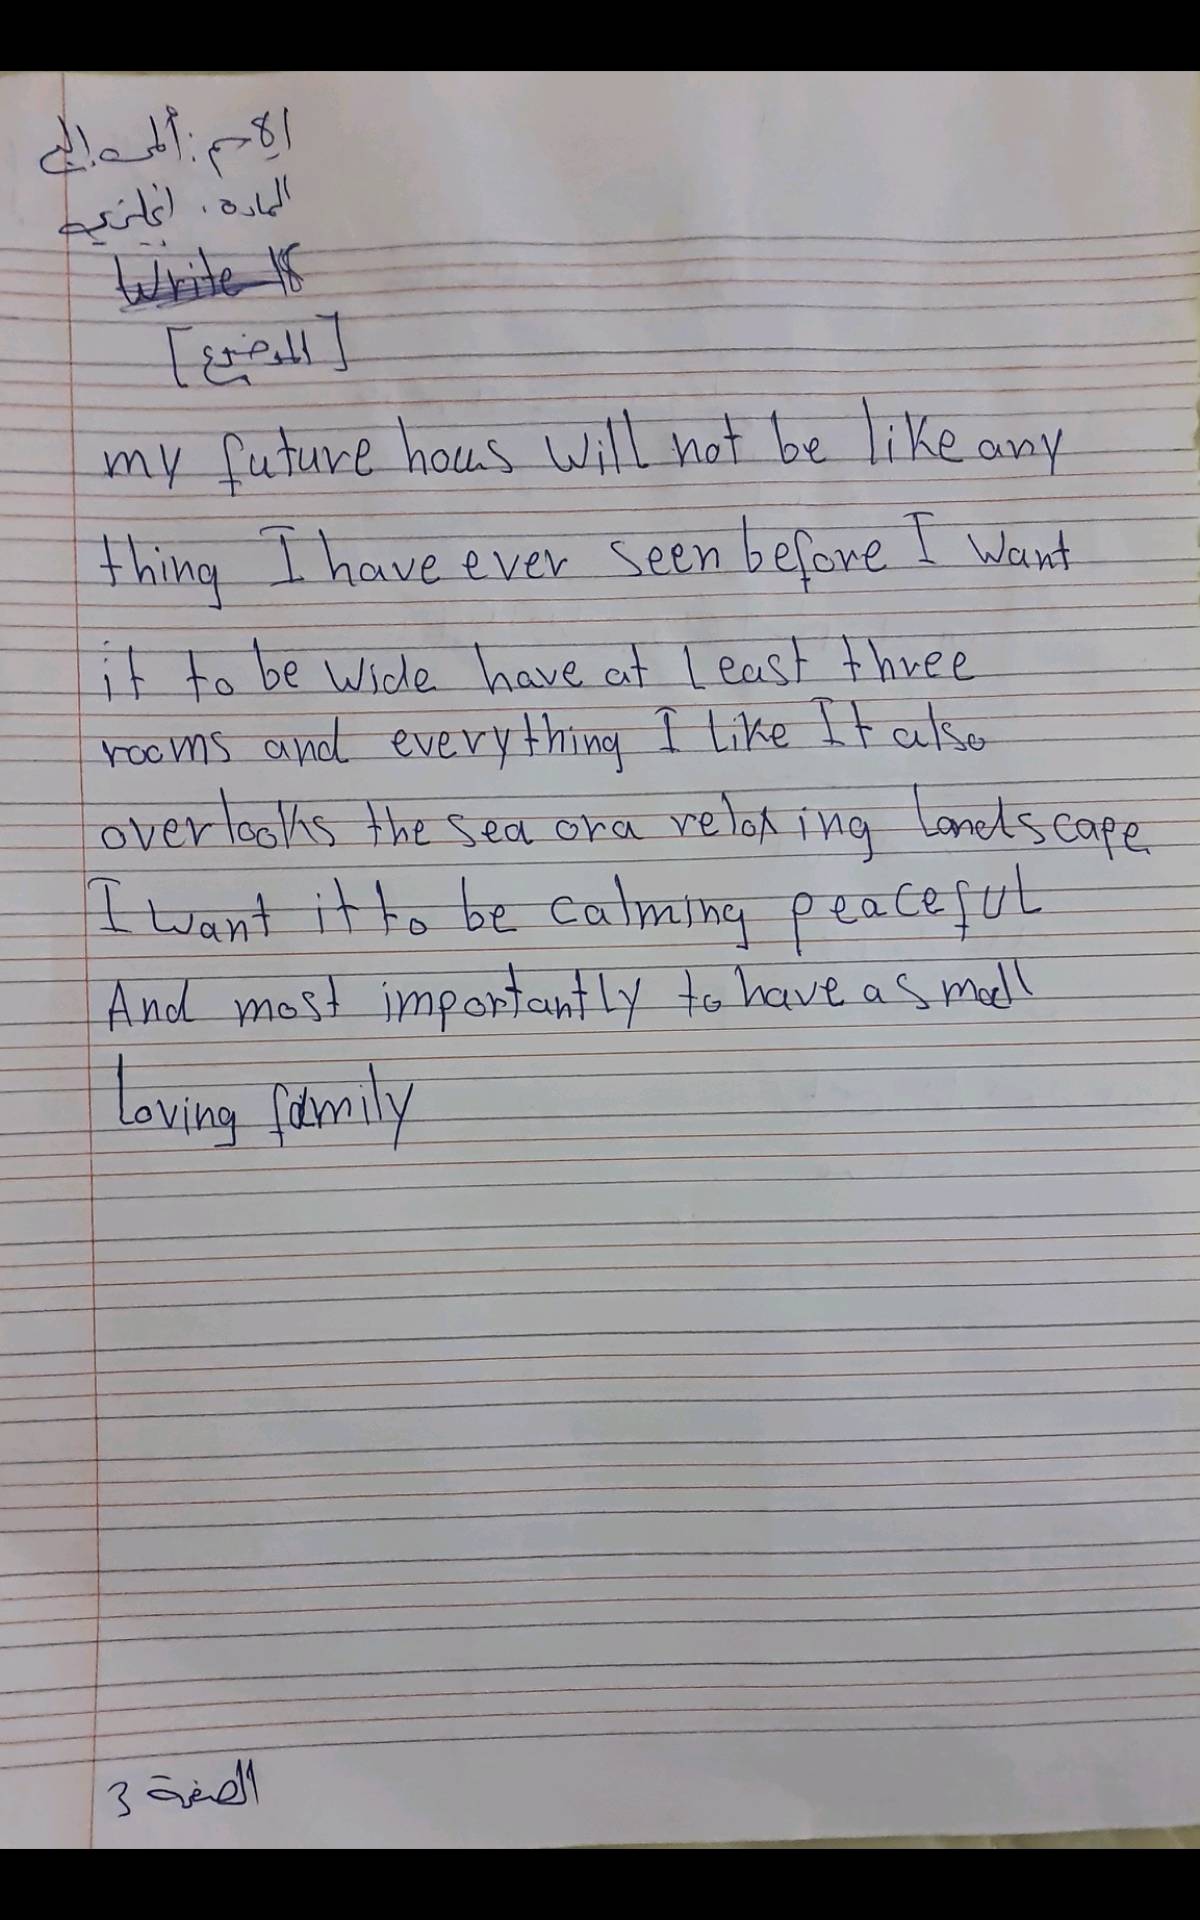 الاسم: ألمى
المادة: انجليزيه
Write 18
[الموضوع]
my future hous will not be like any
thing I have ever seen before I want
it to be wide have at least three
rooms and everything I like It also
overlooks the sea or a relaxing landscape
I want it to be calming peaceful
And most importantly to have a small
loving family
الصفحة 3